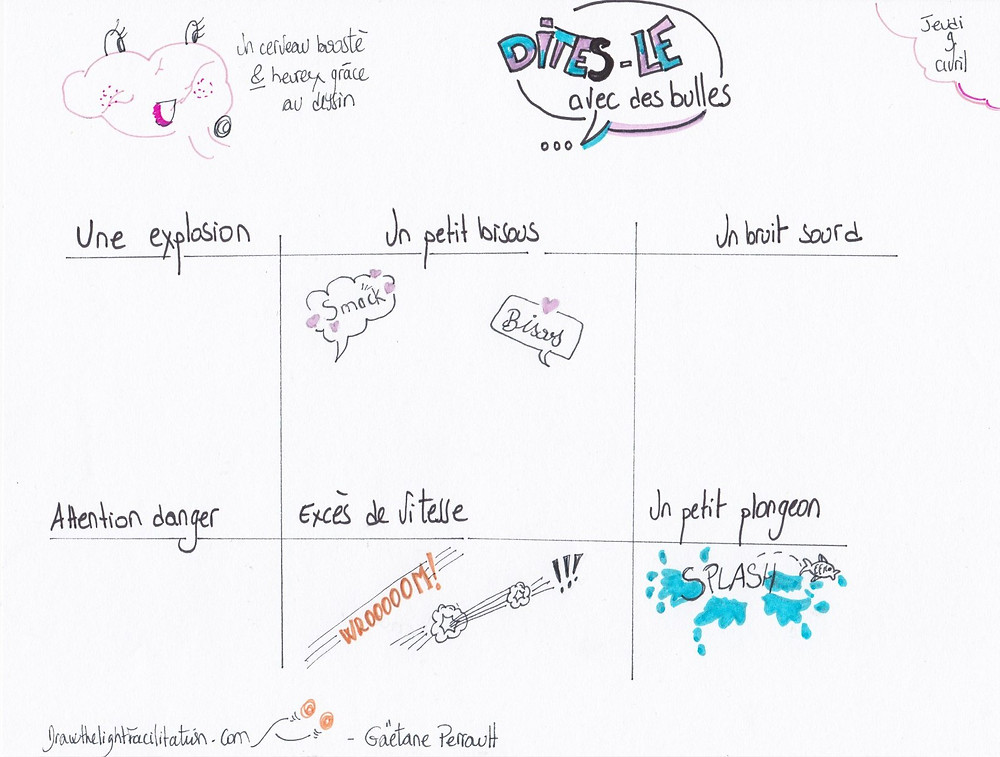 Un cerveau boosté
& heureux grâce
au dessin
DITES-LE
avec des bulles
Jeudi
9
avril
Une explosion
Un petit bisous
Un bruit sourd
Smack
Bisous
Attention danger
Excès de Vitesse
Un petit plongeon
WROOOOOM!
!!!
SPLASH
Drawthelightfacilitation.com
- Gaëtane Perrault